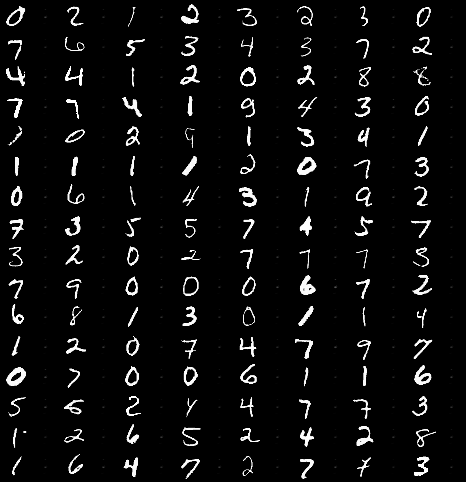 0 2 1 2 3 2 3 0
7 6 5 3 4 3 7 2
4 4 1 2 0 2 8 8
7 7 4 1 9 4 3 0
7 0 2 9 1 3 4 1
1 1 1 1 2 0 7 3
0 6 1 4 3 1 9 2
7 3 5 5 7 4 5 7
3 2 0 2 7 7 7 5
7 9 0 0 0 6 7 2
6 8 1 3 0 1 1 4
1 2 0 7 4 7 9 7
0 7 0 0 6 1 1 6
5 5 2 4 4 7 7 3
1 2 6 5 2 4 2 8
1 6 4 7 2 7 7 3